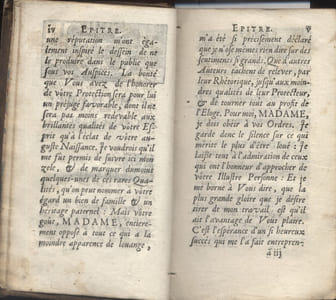 iv EPITRE.
une réputation m'ont éga-
lement inspiré le dessein de ne
le produire dans le public que
sous vos Auspices. La bonté
que Vous avez de l'honorer
de votre Protection sera pour lui
un préjugé favorable, dont il ne
sera pas moins redevable aux
brillantes qualités de votre Es-
prit qu'à l'éclat de votre au-
guste Naissance. Je voudrois qu'il
me fut permis de suivre ici mon
zele, & de marquer du moins
quelques-unes de ces rares Qua-
lités, qu'on peut nommer à vôtre
égard un bien de famille & un
héritage paternel : Mais votre
goût, MADAME, entiere-
ment opposé à tout ce qui a la
moindre apparence de louange,
EPITRE. v
m'a été si précisément déclaré
que je n'ose mêmes rien dire sur des
sentimens si grands. Que d'autres
Auteurs tachent de relever, par
leur Rhétorique, jusqu'aux moin-
dres qualités de leur Protecteur,
& de tourner tout au profit de
l'Eloge. Pour moi, MADAME,
je dois obéir à vos Ordres. Je
garde donc le silence sur ce qui
mérite le plus d'être loué : Je
laisse tout à l'admiration de ceux
qui ont l'honneur d'approcher de
votre Illustre Personne : Et je
me borne à Vous dire, que la
plus grande gloire que je désire
tirer de mon travail est qu'il
ait l'avantage de Vous plaire.
C'est l'espérance d'un si heureux
succès qui me l'a fait entrepren-
à iij